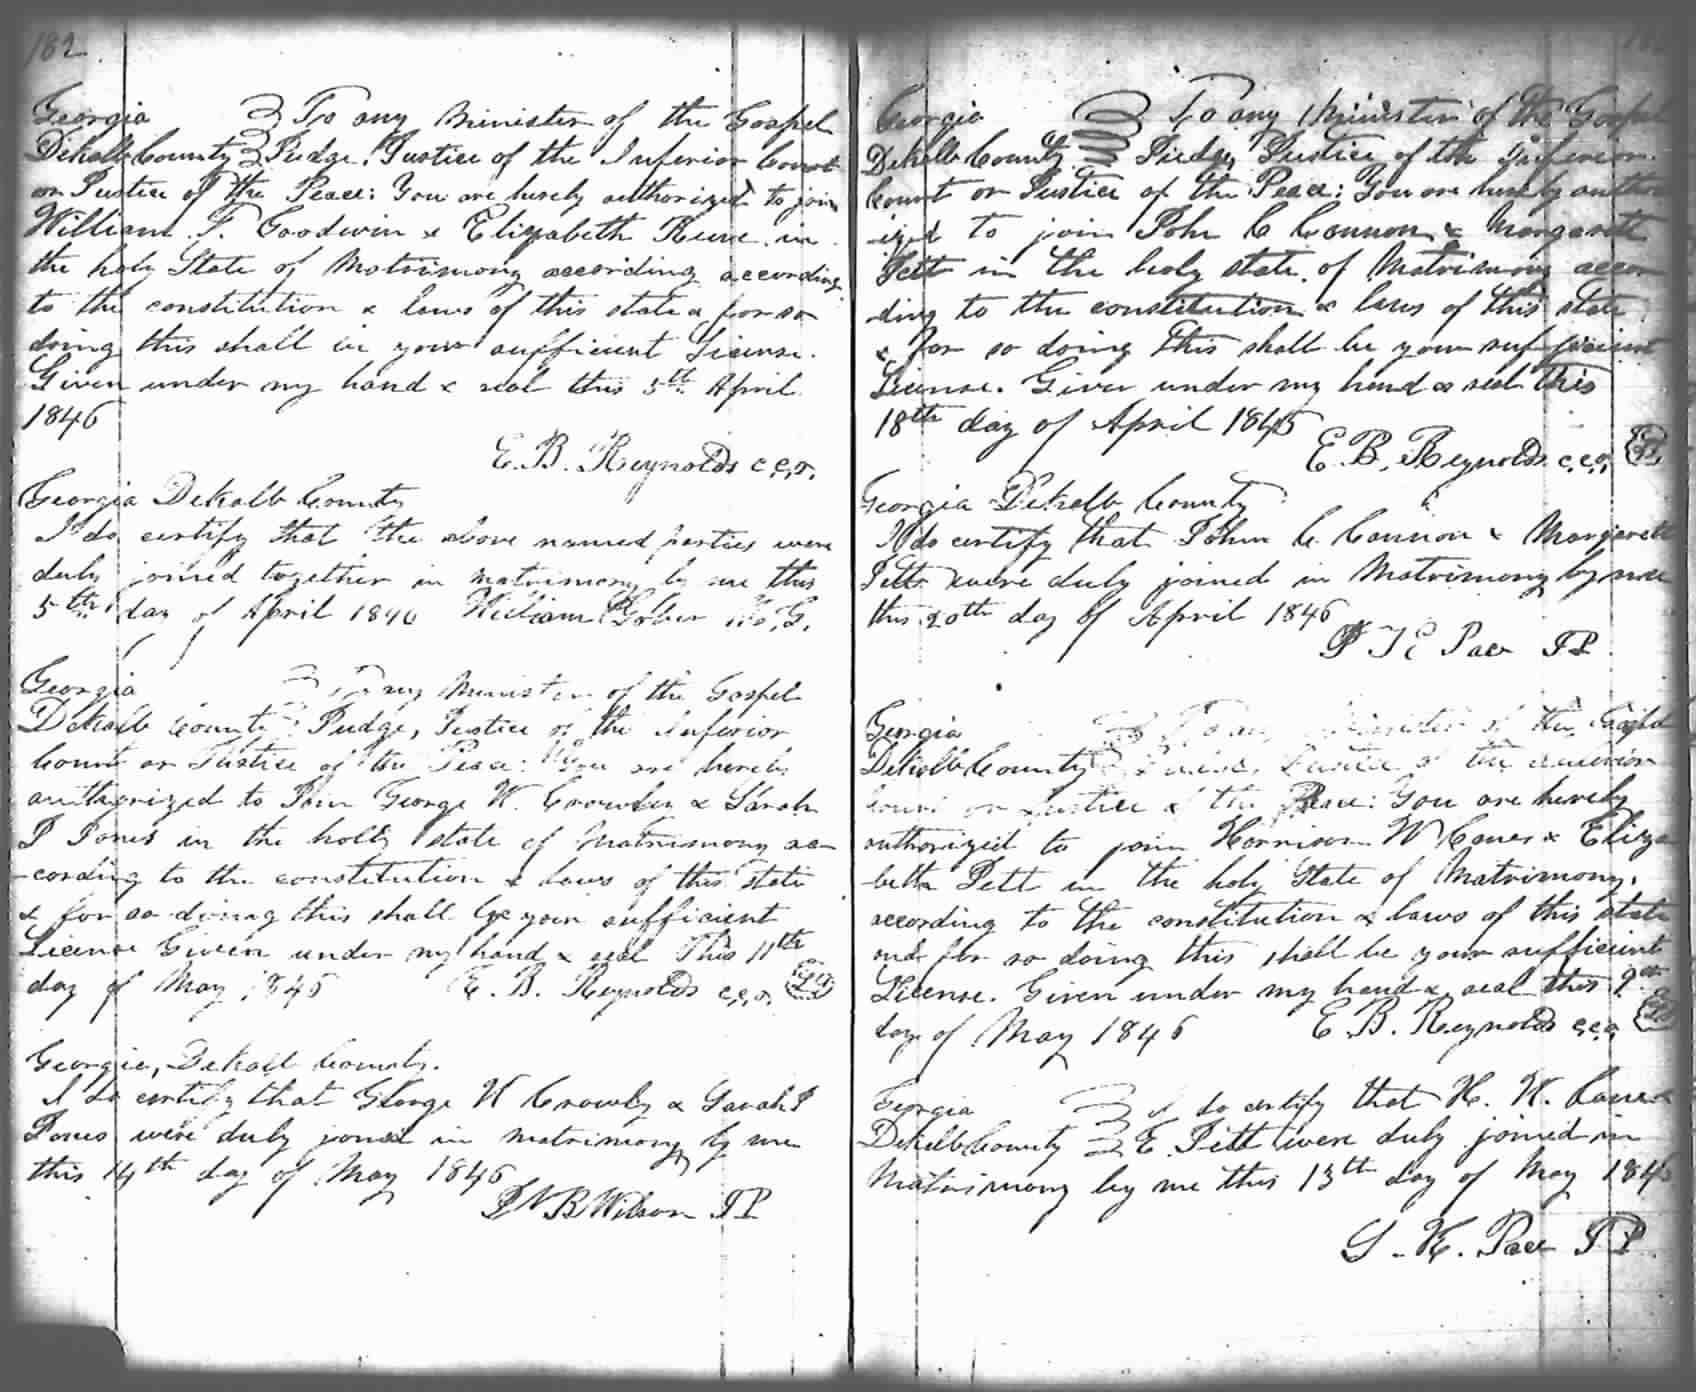 182
Georgia To any Minister of the Gospel
Dekalb County Judge, Justice of the Inferior Court
or Justice of the Peace: You are hereby authorized to join
William F. Goodwin & Elizabeth Reeve in
the holy State of Matrimony according according
to the constitution & laws of this state & for so
doing this shall be your sufficient License.
Given under my hand & seal this 5th April
1846
E. B. Reynolds c.c.o.
Georgia Dekalb County
I do certify that the above named parties were
duly joined together in matrimony by me this
5th day of April 1846 William Gober M. G.
Georgia To any Minister of the Gospel
Dekalb County Judge, Justice of the Inferior
Court or Justice of the Peace: You are hereby
authorized to Join George W. Crowley & Sarah
J Jones in the holy state of Matrimony ac-
cording to the constitution & laws of this state
& for so doing this shall be your sufficient
License Given under my hand & seal This 11th
day of May 1846 E. B. Reynolds c.c.o.
Georgia, Dekalb County.
I do certify that George W Crowley & Sarah J
Jones were duly joined in matrimony by me
this 14th day of May 1846
B Wilson JP
Georgia To any Minister of the Gospel
Dekalb County Judge, Justice of the Inferior
Court or Justice of the Peace: You are hereby author
ized to join John C Cannon & Margarett
Jett in the holy state of Matrimony accor
ding to the constitution & laws of this state
& for so doing this shall be your sufficient
License. Given under my hand & seal this
18th day of April 1846
E. B. Reynolds c.c.o.
Georgia Dekalb County
I do certify that John C. Cannon & Margarett
Jett were duly joined in Matrimony by me
this 20th day of April 1846
Pace JP
Georgia To any Minister of the Gospel
Dekalb County Justice of the Inferior
Court or Justice of the Peace: You are hereby
authorized to join Harrison W Caves & Eliza
beth Jett in the holy State of Matrimony,
according to the constitution & laws of this state
and for so doing this shall be your sufficient
License. Given under my hand & seal this 9th
day of May 1846 E B. Reynolds c.c.o.
Georgia I do certify that H. W. Caves &
Dekalb County E. Jett were duly joined in
Matrimony by me this 13th day of May 1846
Pace JP